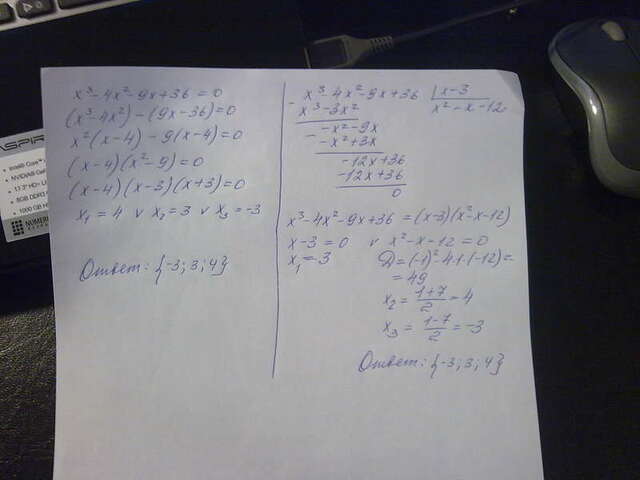 x³-4x²-9x+36=0
(x³-4x²)-(9x-36)=0
x²(x-4)-9(x-4)=0
(x-4)(x²-9)=0
(x-4)(x-3)(x+3)=0
x₁=4 ∨ x₂=3 ∨ x₃=-3
Ответ: {-3; 3; 4}
x³-4x²-9x+36 | x-3
- x³-3x² x²-x-12
-x²-9x
- -x²+3x
-12x+36
-12x+36
0
x³-4x²-9x+36=(x-3)(x²-x-12)
x-3=0 ∨ x²-x-12=0
x₁=3 D=(-1)²-4·1·(-12)=
=49
x₂=(1+7)/2=4
x₃=(1-7)/2=-3
Ответ: {-3; 3; 4}
ASPIR